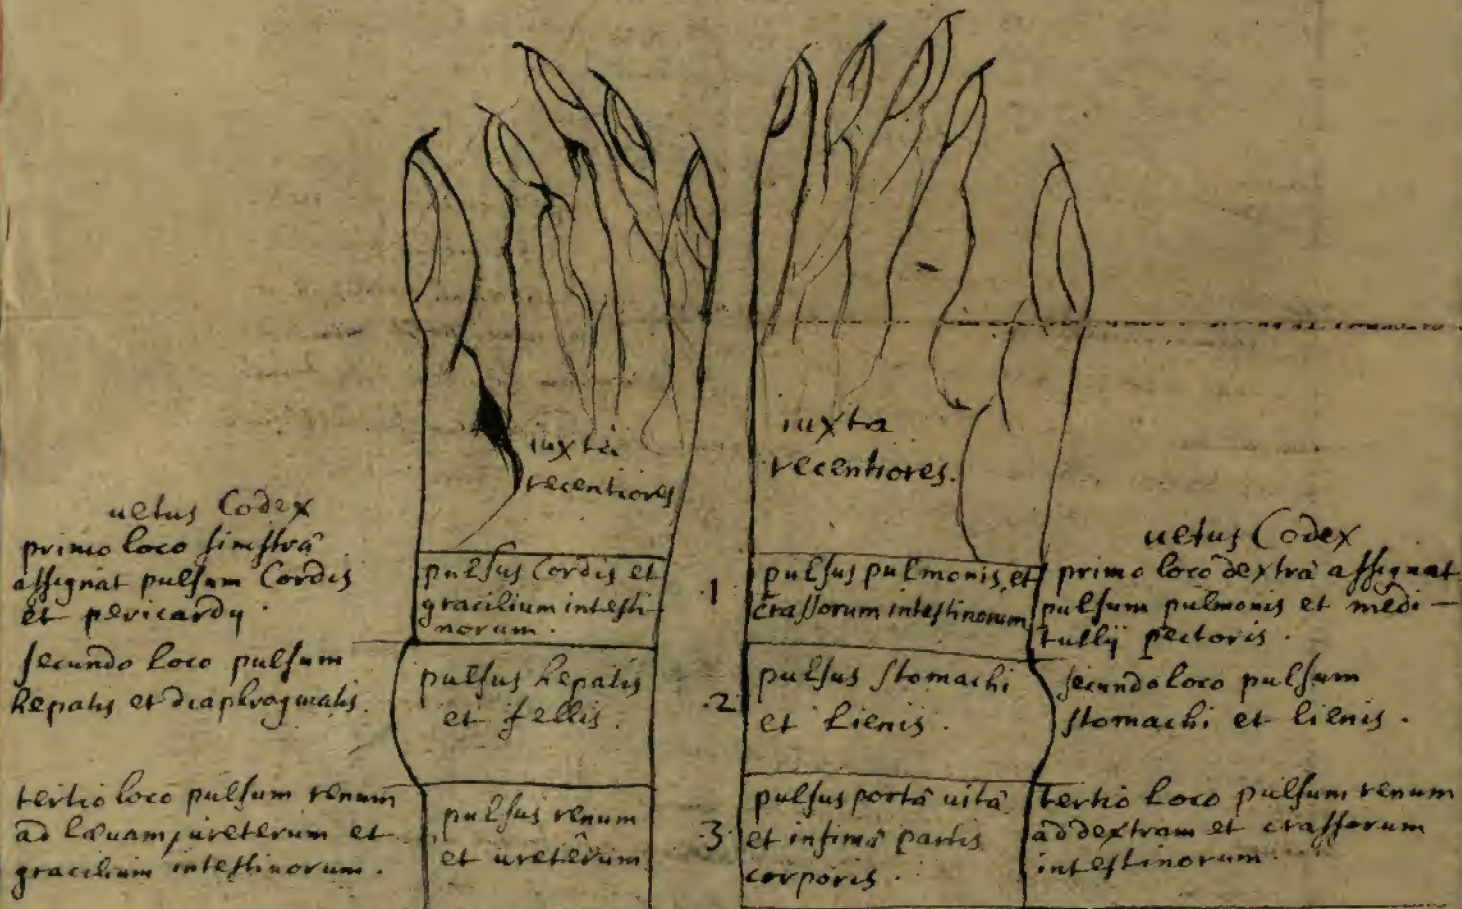 iuxta
recentiores
iuxta
recentiores.
uetus Codex
primo loco sinistrâ
assignat pulsum Cordis
et pericardij.
secundo loco pulsum
hepatis et diaphragmatis.
tertio loco pulsum renum
ad lævam, ureterum et
gracilium intestinorum.
pulsus Cordis et
gracilium intesti-
norum.
pulsus hepatis
et fellis.
pulsus renum
et ureterum
.1
.2
.3
pulsus pulmonis, et
crassorum intestinorum
pulsus stomachi
et lienis.
pulsus portâ uitâ
et infimâ partis
corporis.
uetus Codex
primo locô dextrâ assignat
pulsum pulmonis et medi-
tullij pectoris.
secundo loco pulsum
stomachi et lienis.
tertio loco pulsum renum
ad dextram et crassorum
intestinorum